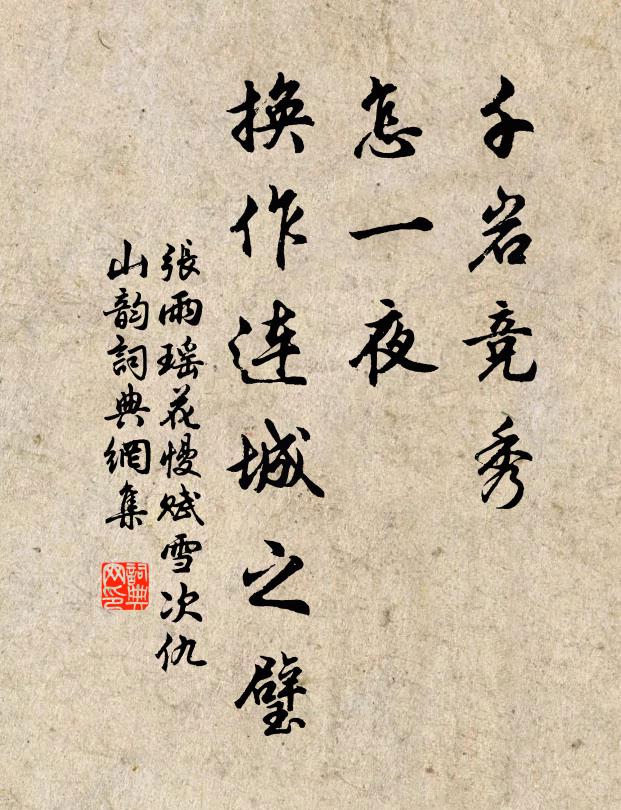 千岩竞秀
怎一夜
换作连城之璧
張雨瑶花慢赋雪次仇
山韵詞典網集
詞典网印